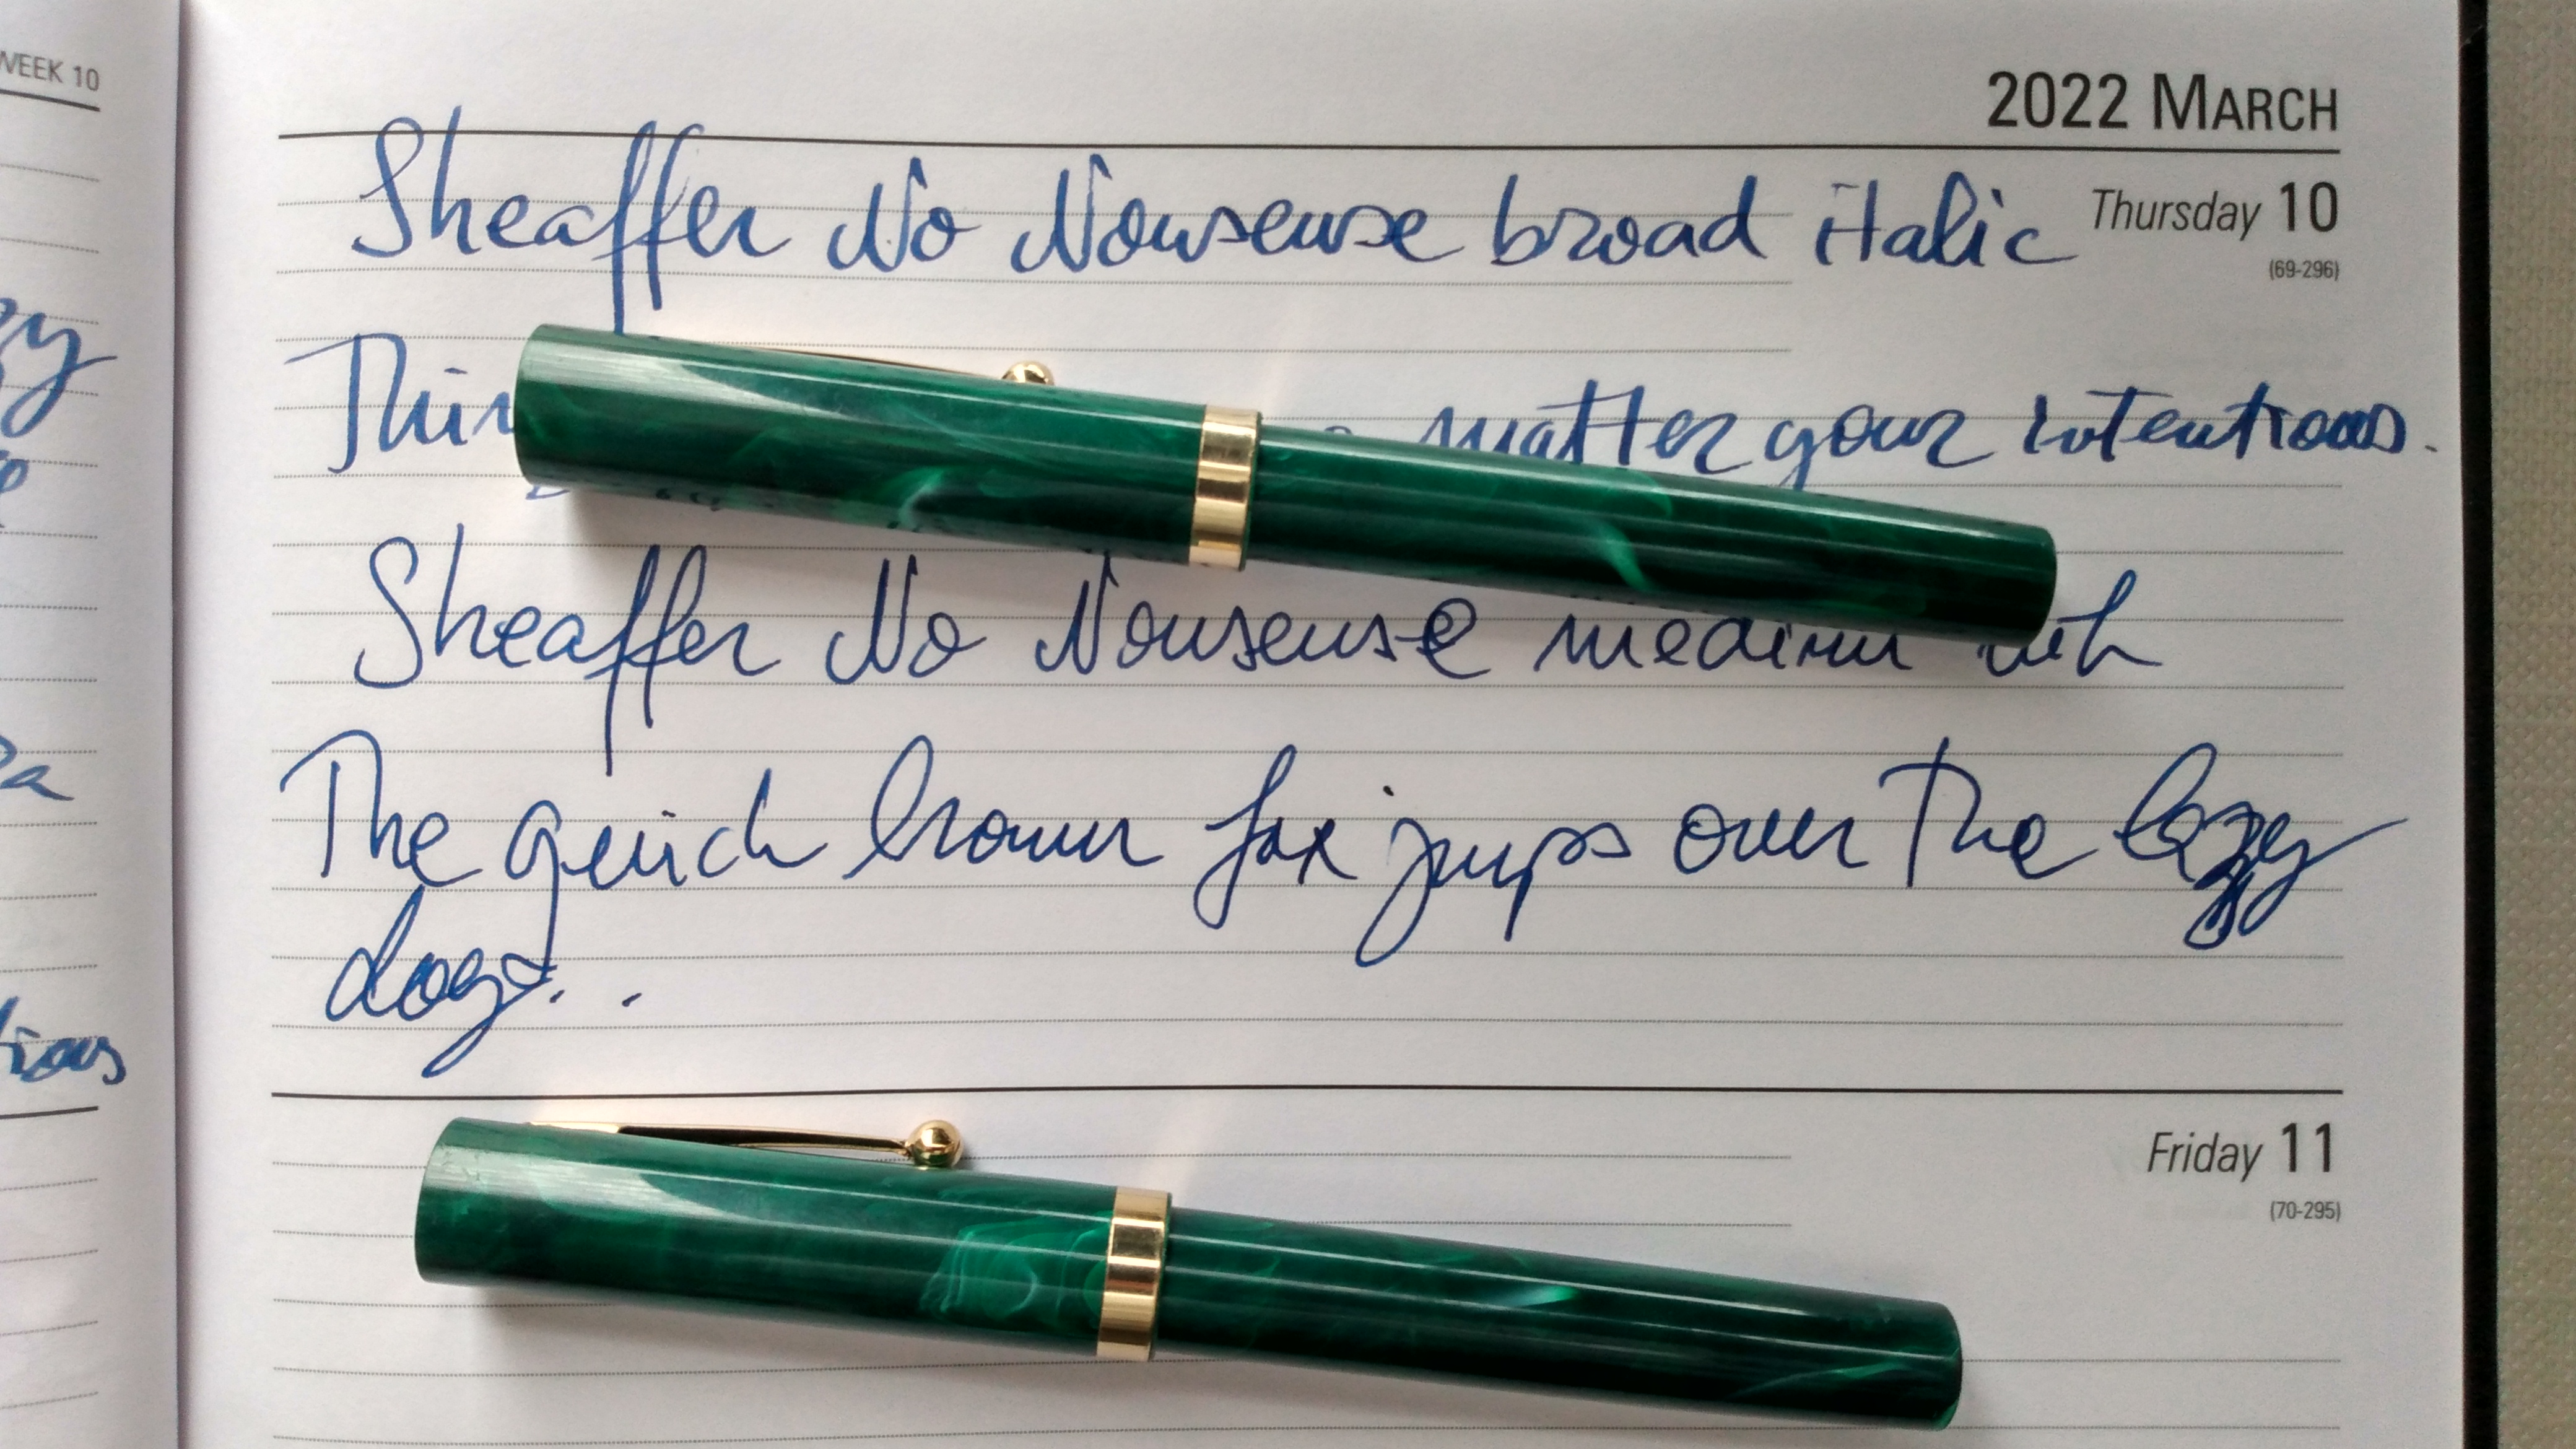 WEEK 10
2022 MARCH
Thursday 10
(69-296)
Sheaffer No Nonsense broad italic
matter your intentions.
Sheaffer No Nonsense medium nib
The quick brown fox jumps over the lazy
dog...
Friday 11
(70-295)